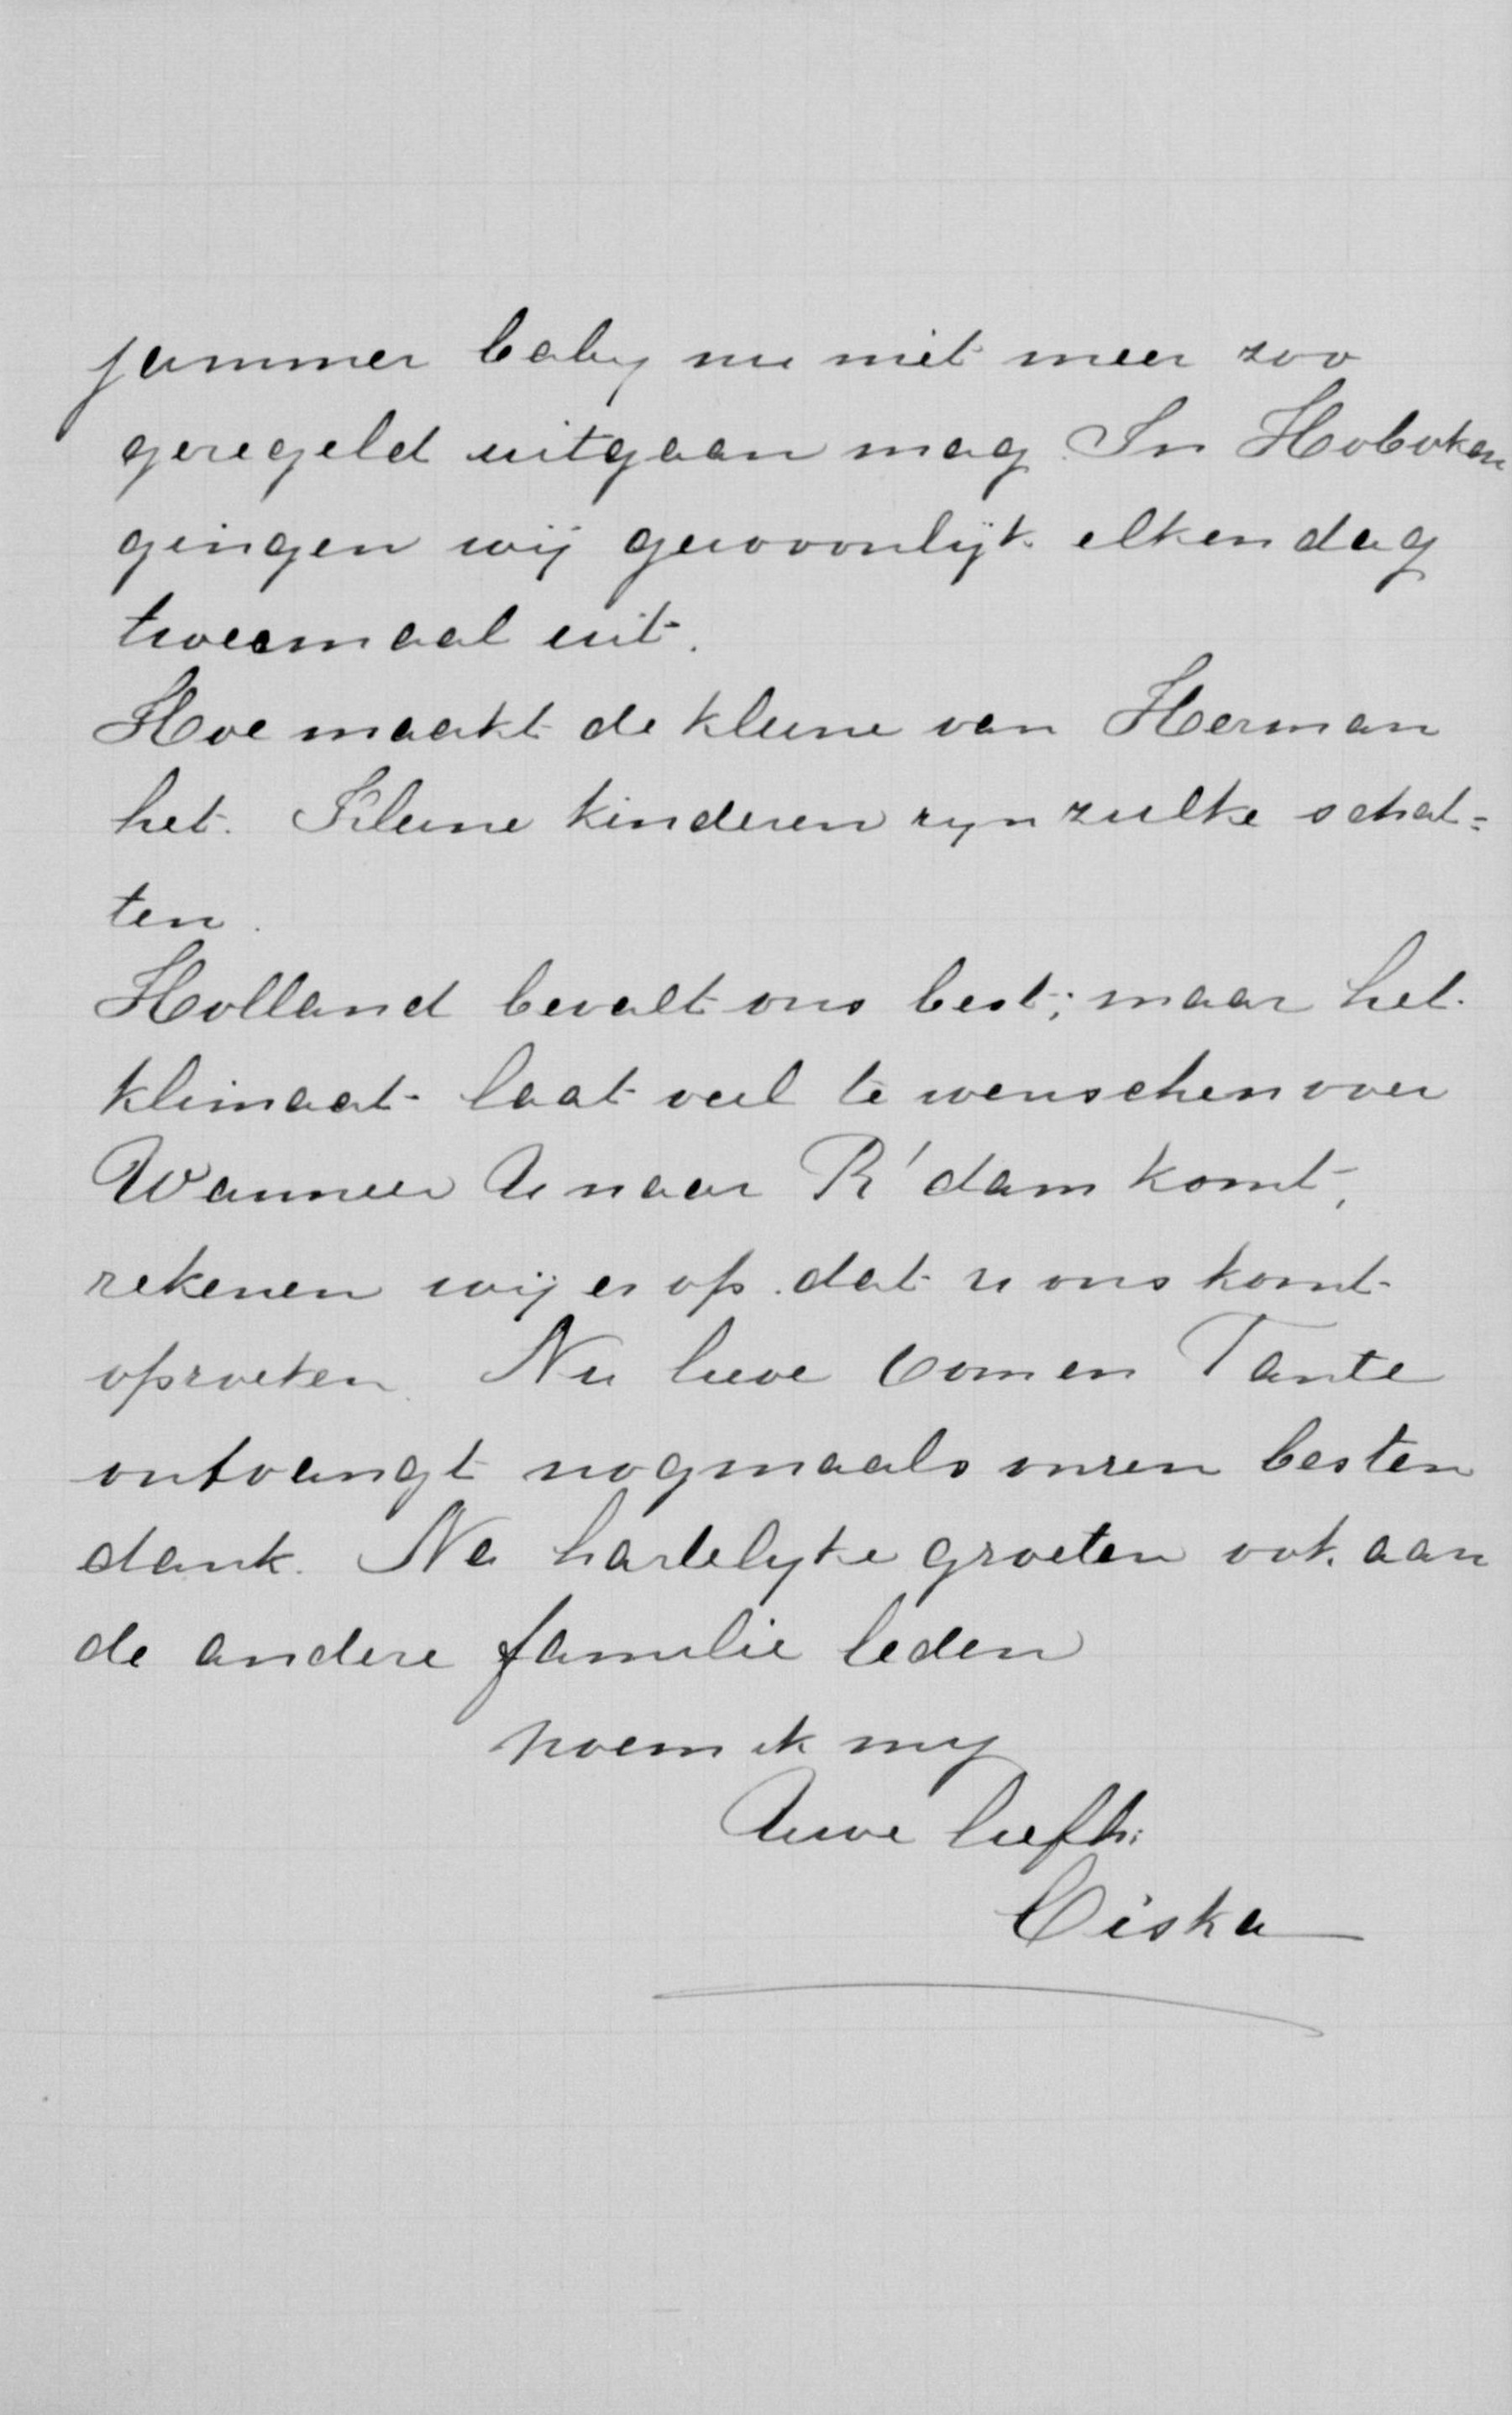 jammer baby nu niet meer zoo
geregeld uitgaan mag. In Hoboken
gingen wij gewoonlijk elken dag
tweemaal uit.
Hoe maakt de kleine van Herman
het. Kleine kinderen zyn zulke schat=
ten.
Holland bevalt ons best; maar het
klimaat laat veel te wenschen over
Wanneer U naar R'dam komt,
rekenen wij er op dat u ons komt
opzoeken. Nu lieve Oom en Tante
ontvangt nogmaals onzen besten
dank. Na hartelyke groeten ook aan
de andere familie leden
noem ik my
Uwe liefh:
Ciska